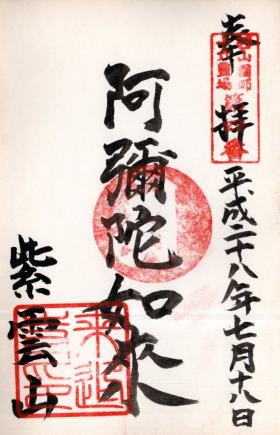 奉拝
平成二十八年七月十八日
阿彌陀如来
紫雲山